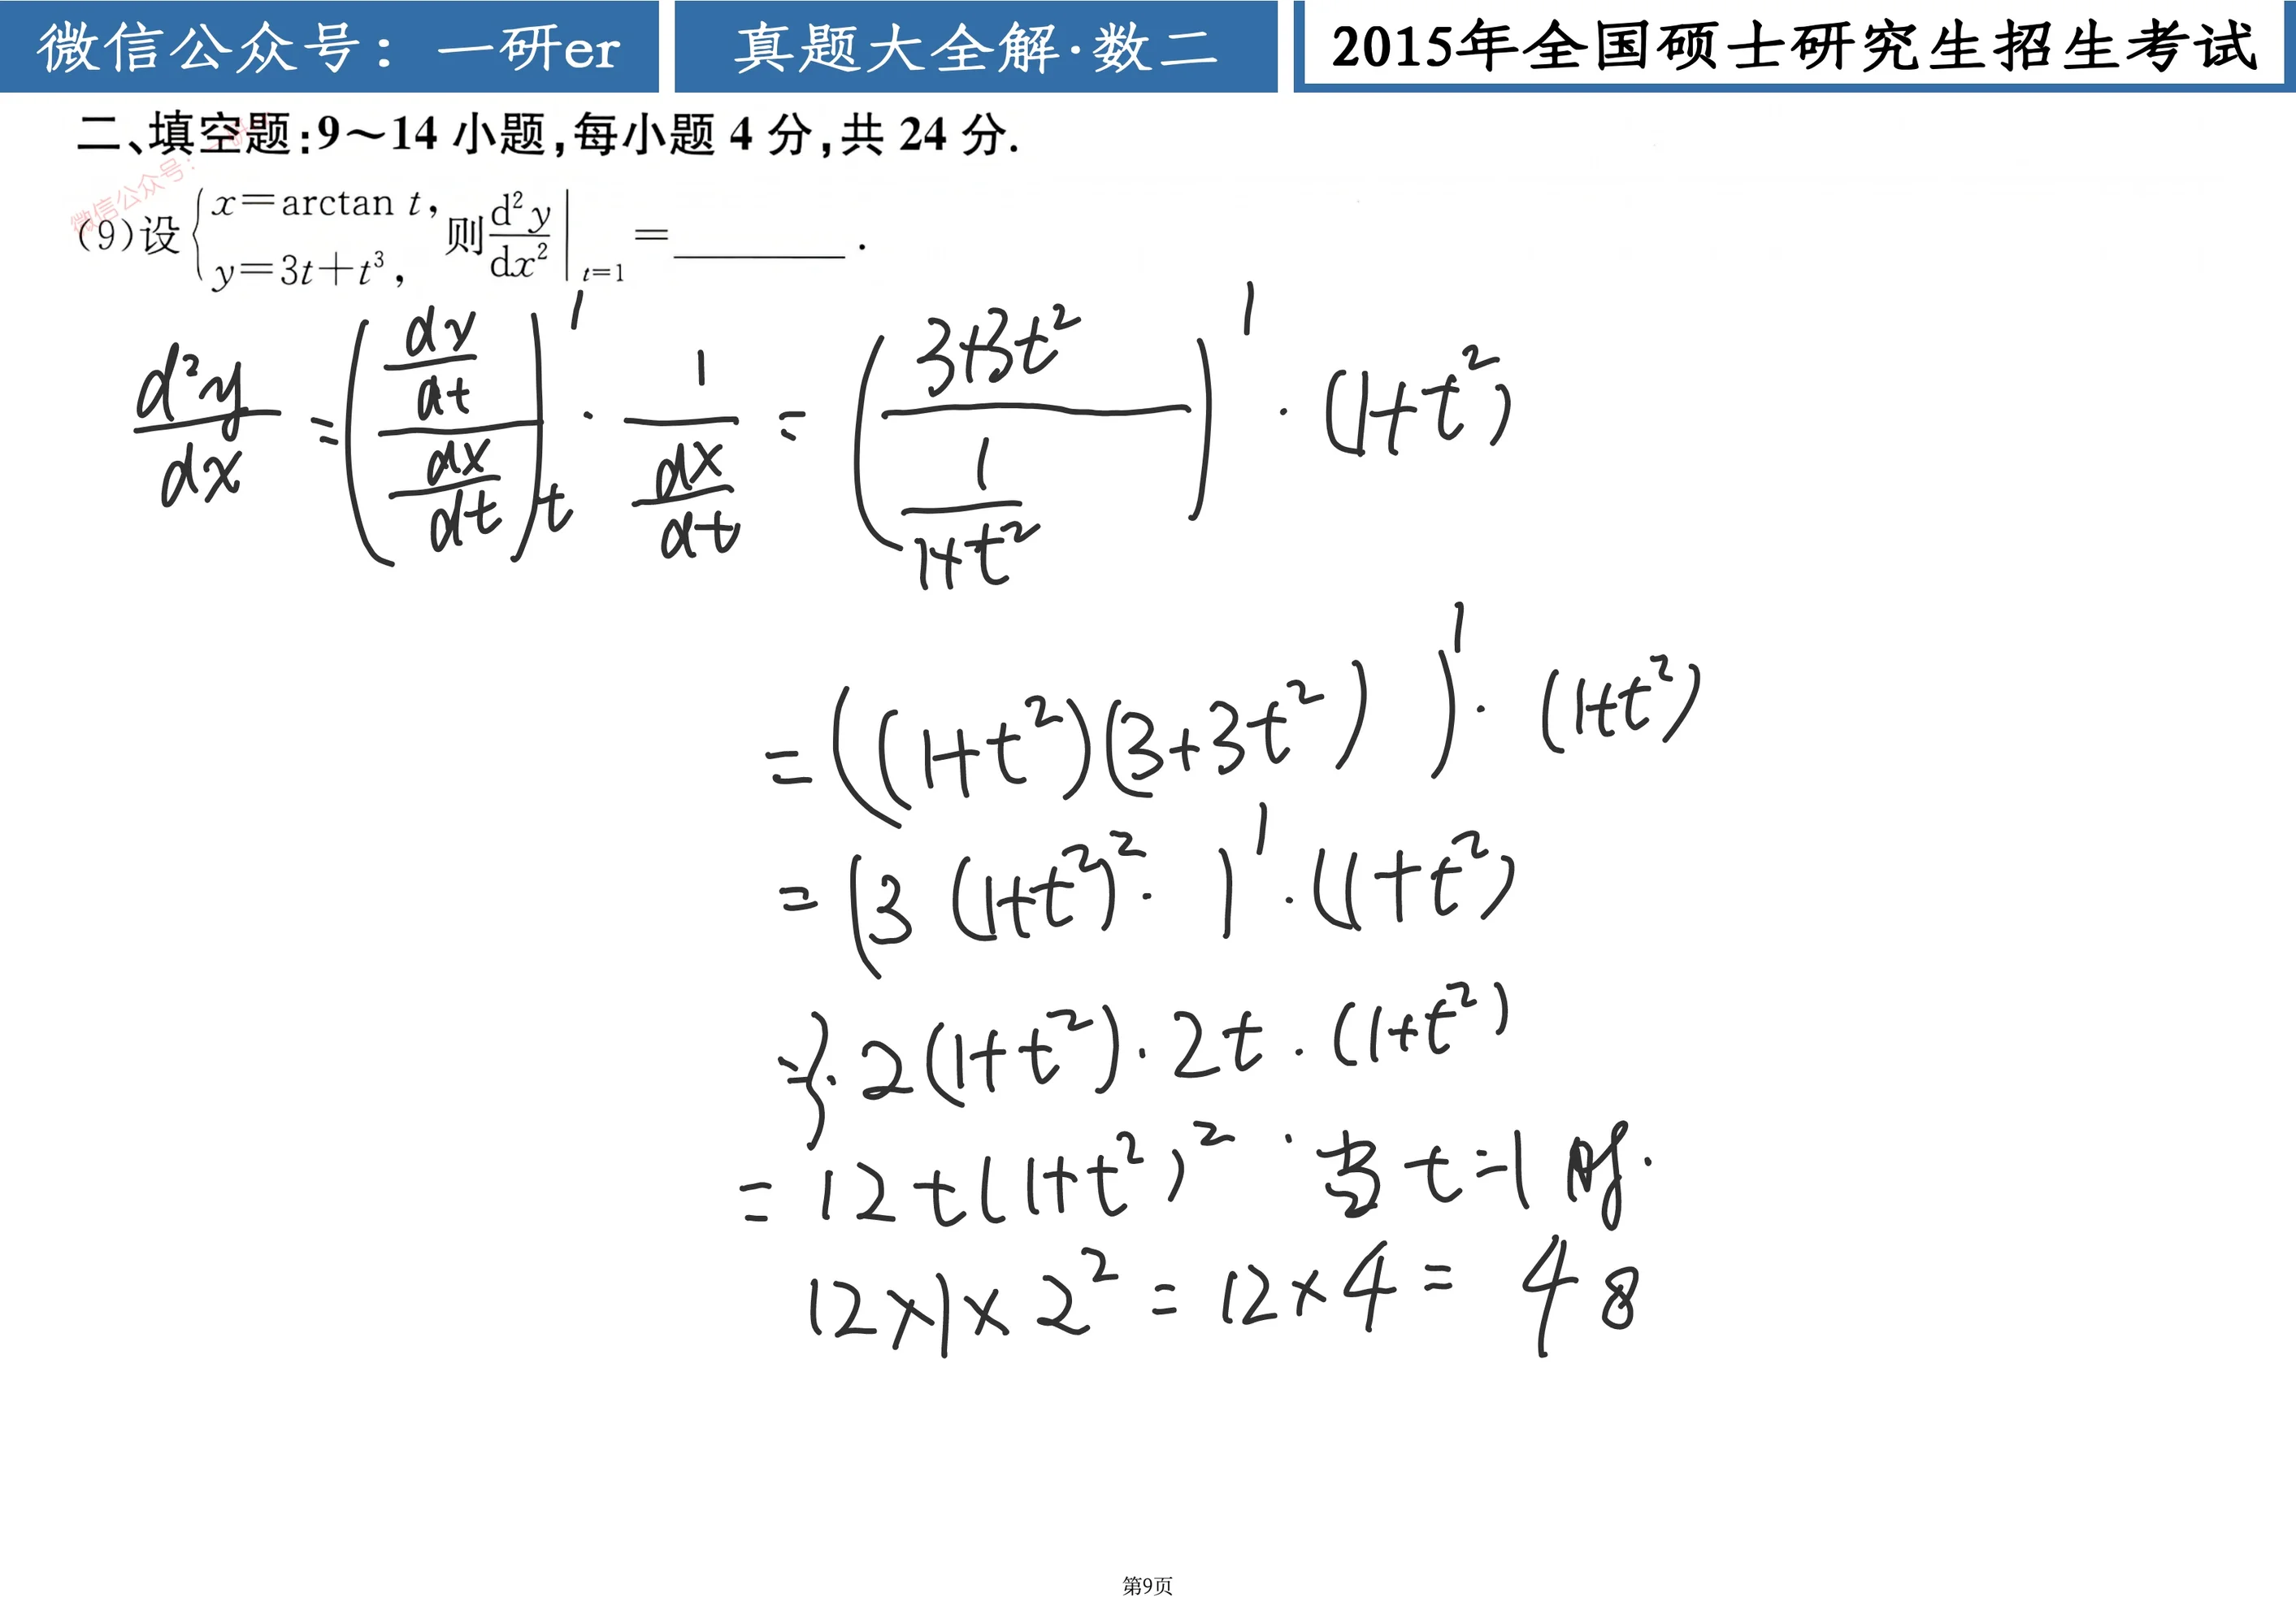 微信公众号：一研er 真题大全解·数二 2015年全国硕士研究生招生考试
二、填空题:9～14 小题,每小题 4 分,共 24 分.
(9)设{x=arctan t, y=3t+t³, 则 d²y/dx² |t=1 = ______ .
d²y/dx = ((dy/dt)/(dx/dt))'t · 1/(dx/dt) = ((3+3t²)/(1/(1+t²)))' · (1+t²)
= ((1+t²)(3+3t²))' · (1+t²)
= (3 (1+t²)² · )' · (1+t²)
= 3 · 2(1+t²) · 2t · (1+t²)
= 12t(1+t²)² · 当 t=1 时.
12×1×2² = 12×4 = 48
第9页